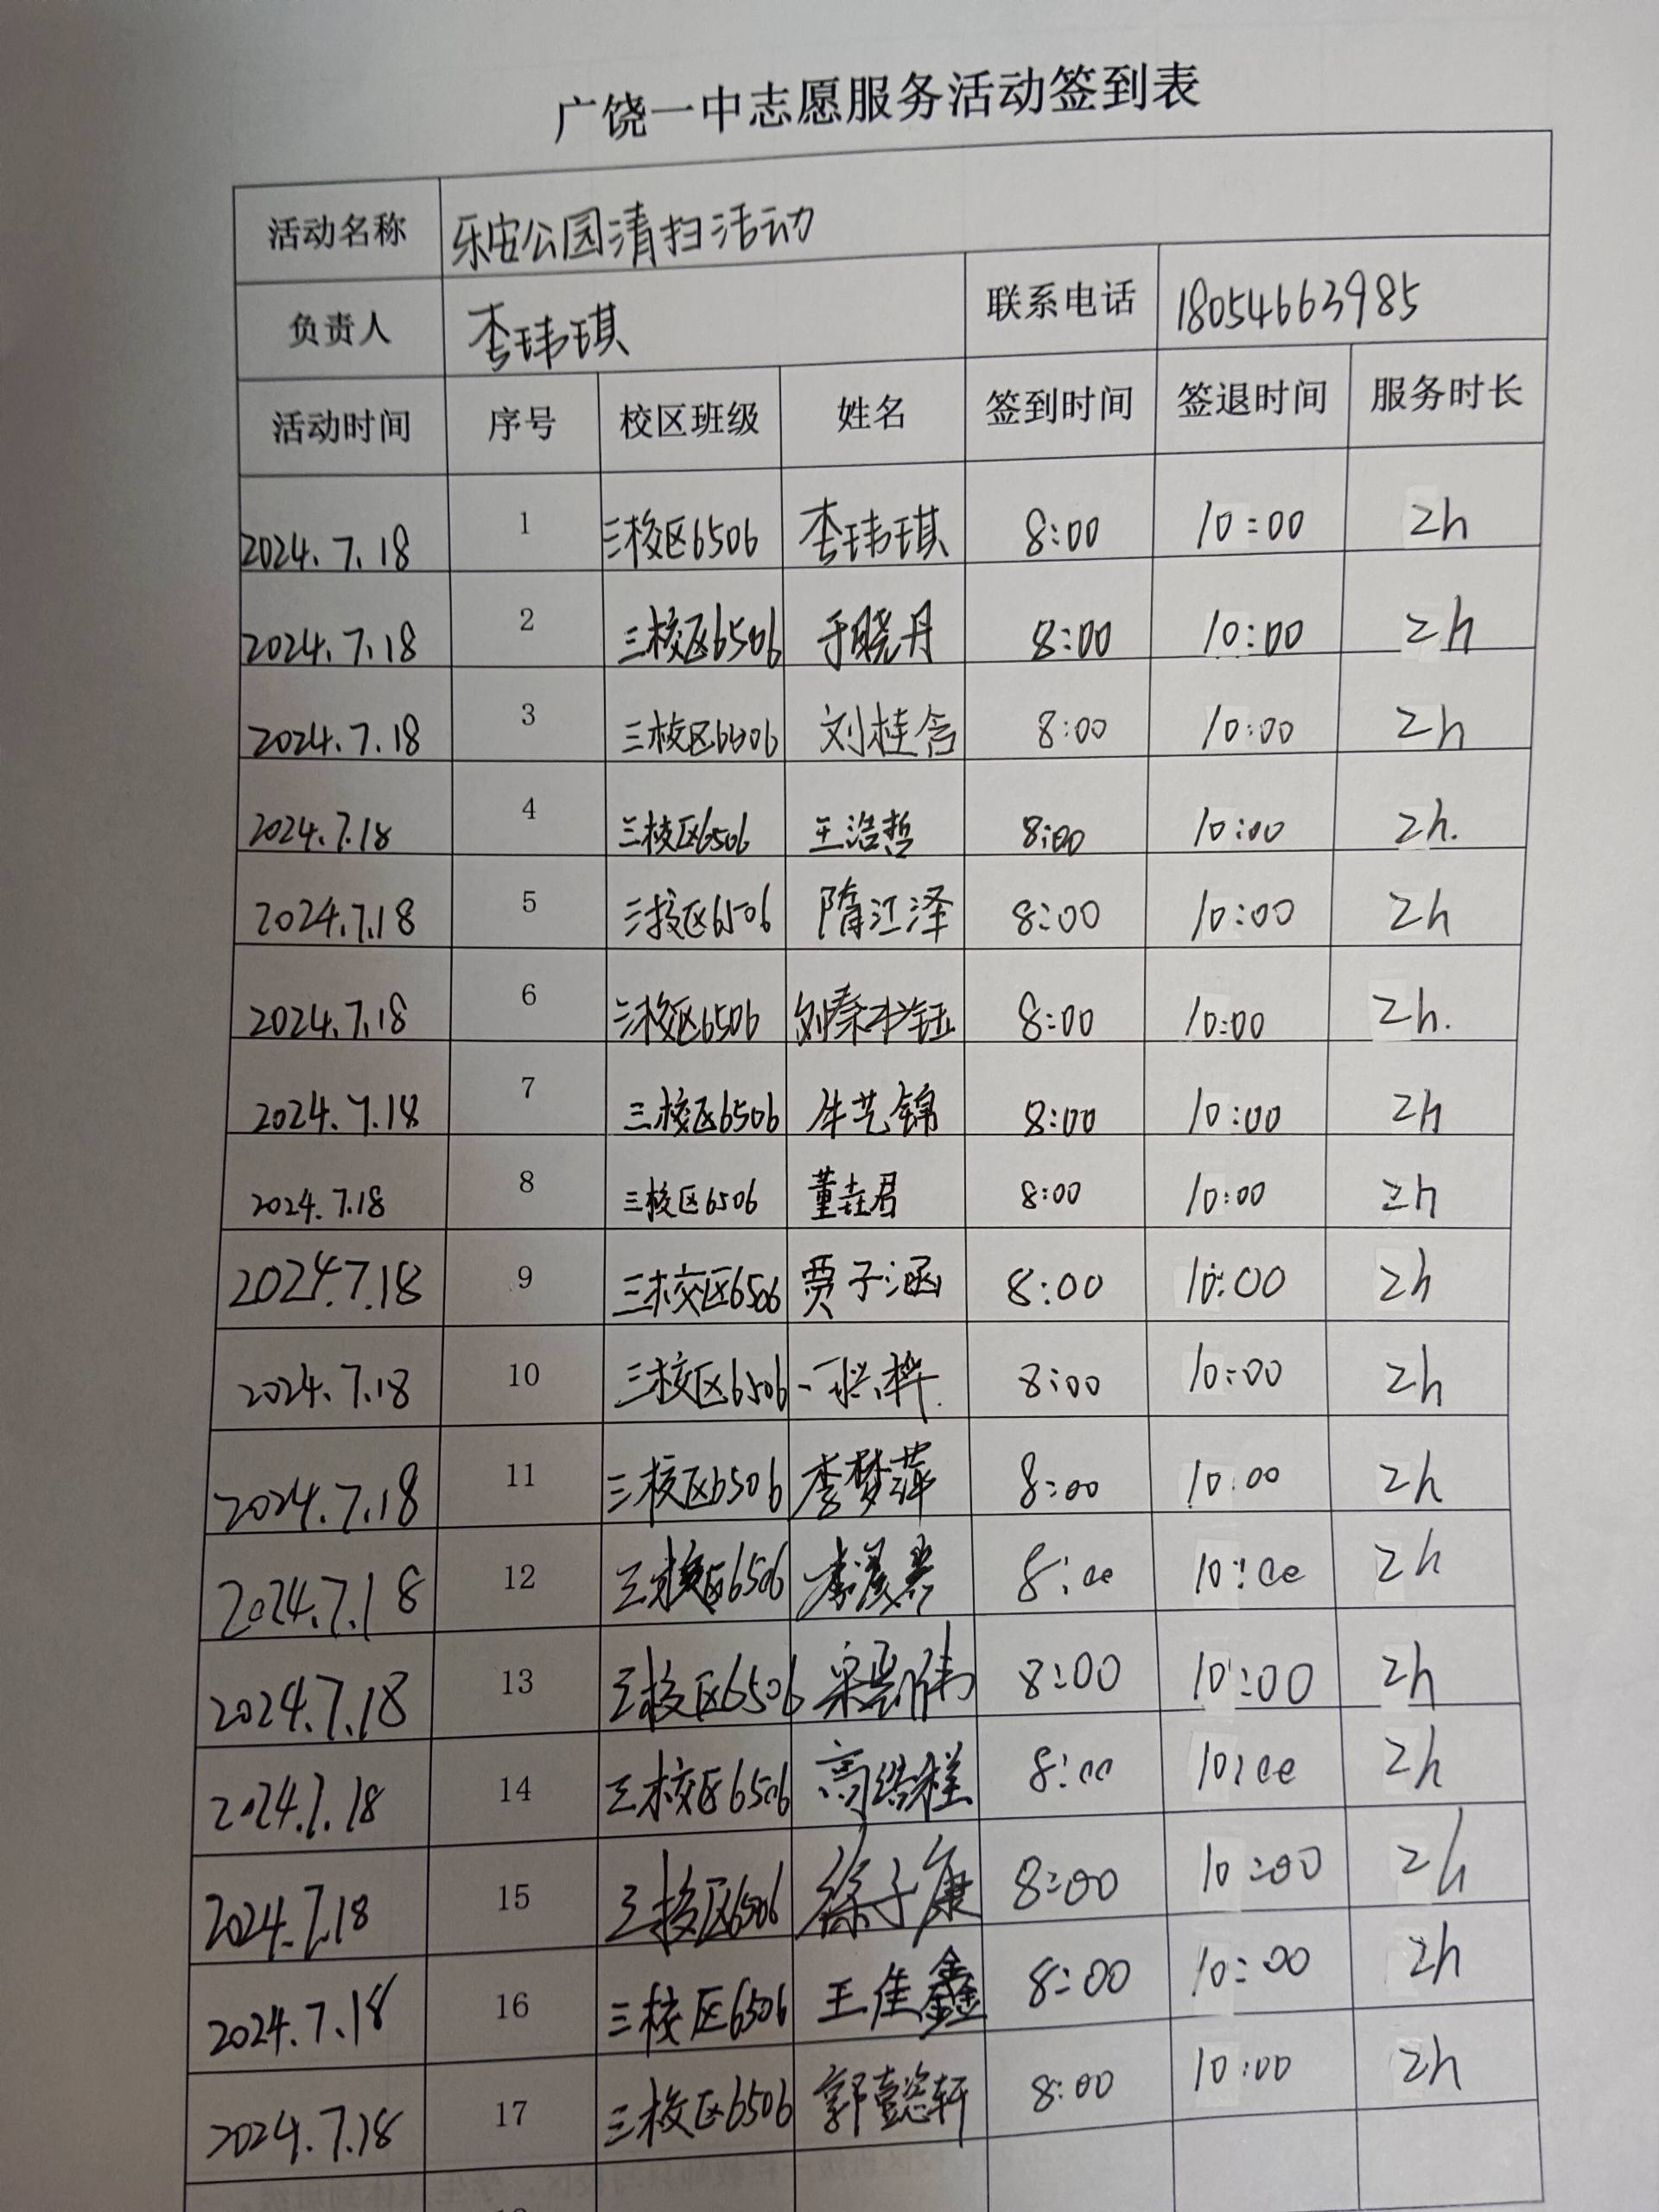 广饶一中志愿服务活动签到表
活动名称 乐安公园清扫活动
负责人 李玮琪 联系电话 18054663985
活动时间 序号 校区班级 姓名 签到时间 签退时间 服务时长
2024.7.18 1 三校区6506 李玮琪 8:00 10:00 2h
2024.7.18 2 三校区6506 于晓丹 8:00 10:00 2h
2024.7.18 3 三校区6506 刘桂含 8:00 10:00 2h
2024.7.18 4 三校区6506 王浩哲 8:00 10:00 2h.
2024.7.18 5 三校区6506 隋江泽 8:00 10:00 2h
2024.7.18 6 三校区6506 刘秦 8:00 10:00 2h.
2024.7.18 7 三校区6506 牛艺锦 8:00 10:00 2h
2024.7.18 8 三校区6506 董垚君 8:00 10:00 2h
2024.7.18 9 三校区6506 贾子涵 8:00 10:00 2h
2024.7.18 10 三校区6506 8:00 10:00 2h
2024.7.18 11 三校区6506 李梦萍 8:00 10:00 2h
2024.7.18 12 三校区6506 李 8:00 10:00 2h
2024.7.18 13 三校区6506 8:00 10:00 2h
2024.7.18 14 三校区6506 高 8:00 10:00 2h
2024.7.18 15 三校区6506 徐子康 8:00 10:00 2h
2024.7.18 16 三校区6506 王佳鑫 8:00 10:00 2h
2024.7.18 17 三校区6506 郭懿轩 8:00 10:00 2h